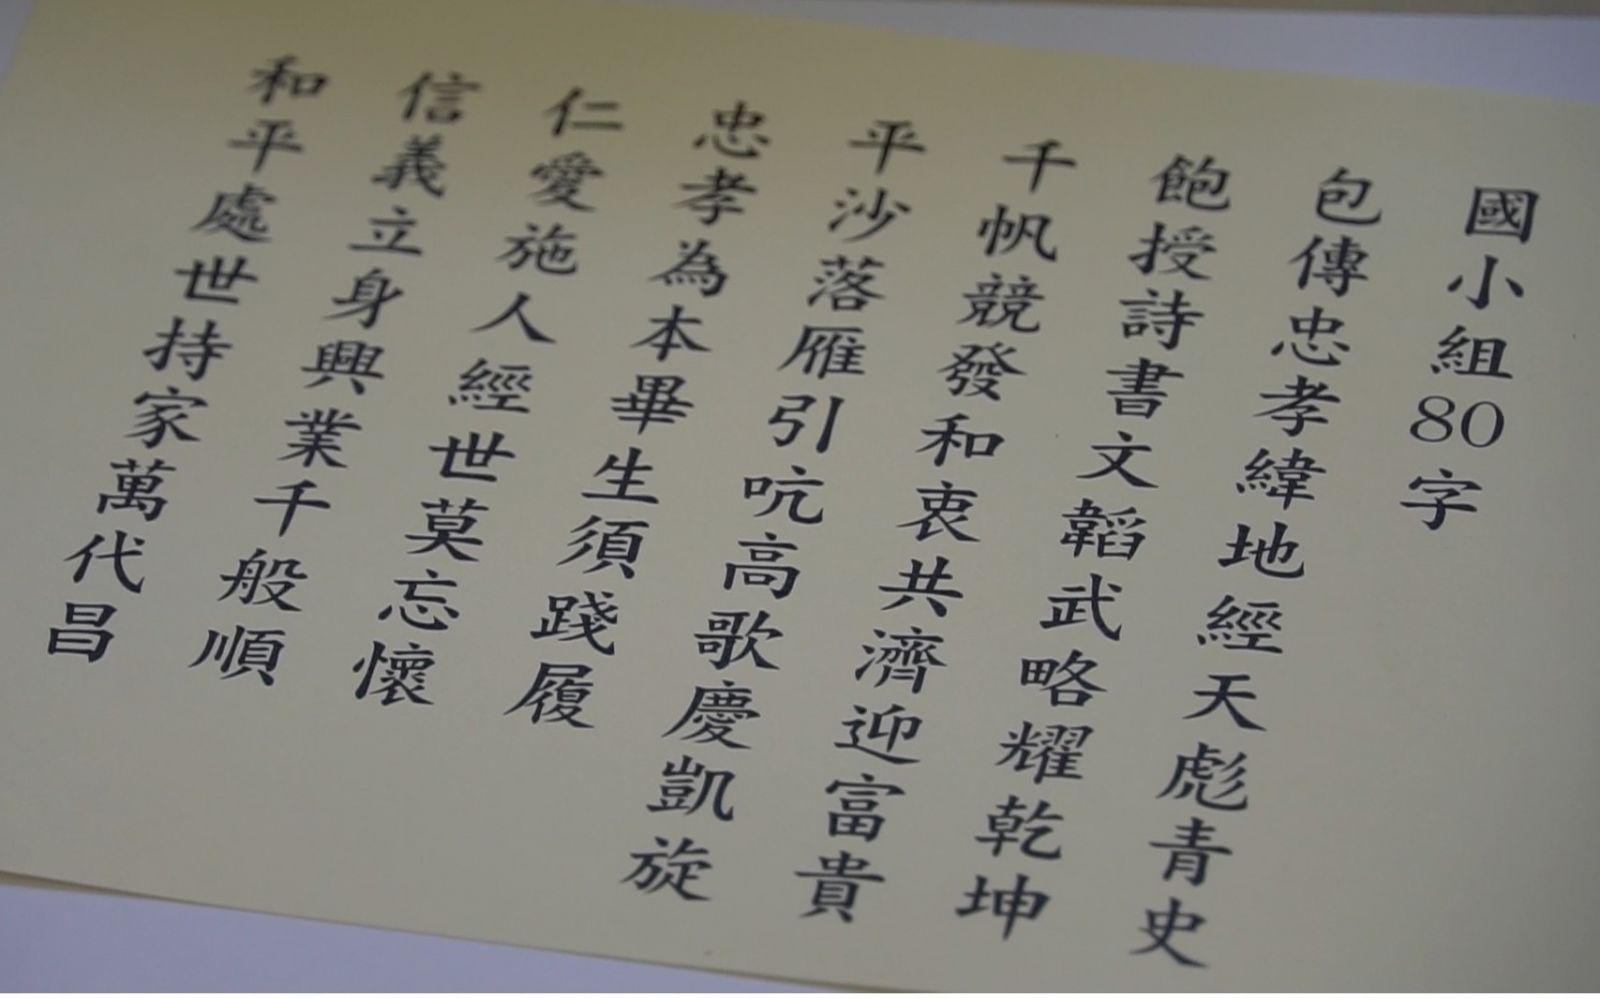 國小組80字
包傳忠孝緯地經天彪青史
飽授詩書文韜武略耀乾坤
千帆競發和衷共濟迎富貴
平沙落雁引吭高歌慶凱旋
忠孝為本畢生須踐履
仁愛施人經世莫忘懷
信義立身興業千般順
和平處世持家萬代昌